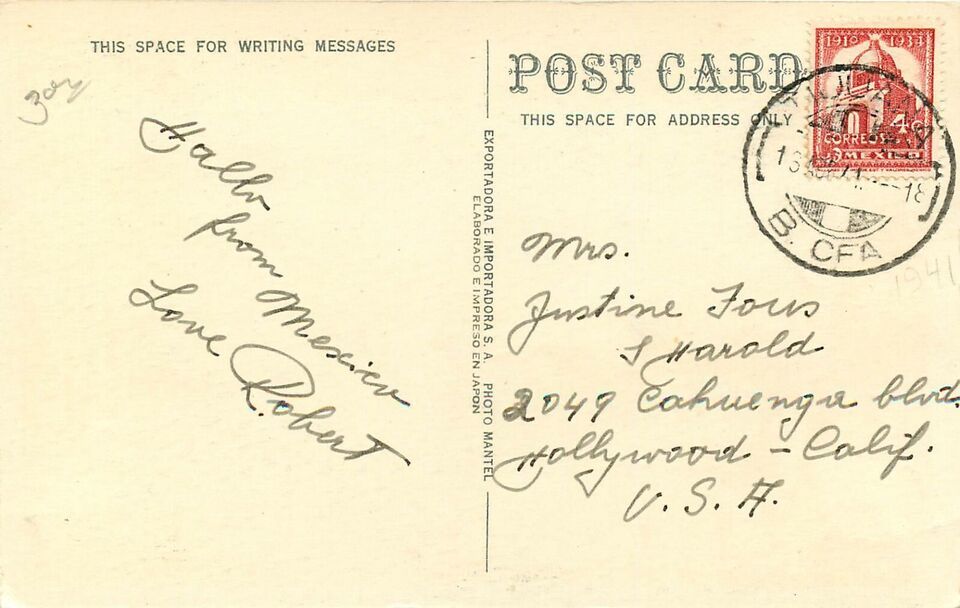 THIS SPACE FOR WRITING MESSAGES
Hallo
from Mexico
Love Robert
EXPORTADORA E IMPORTADORA S. A. PHOTO MANTEL
ELABORADO E IMPRESO EN JAPON
POST CARD
THIS SPACE FOR ADDRESS ONLY
1910 1934
4c
CORREOS
MEXICO
TIJUANA
B. CFA
Mrs.
Justine Fous
Harold
2049 Cahuenga blvd.
Hollywood - Calif.
U. S. A.
1941